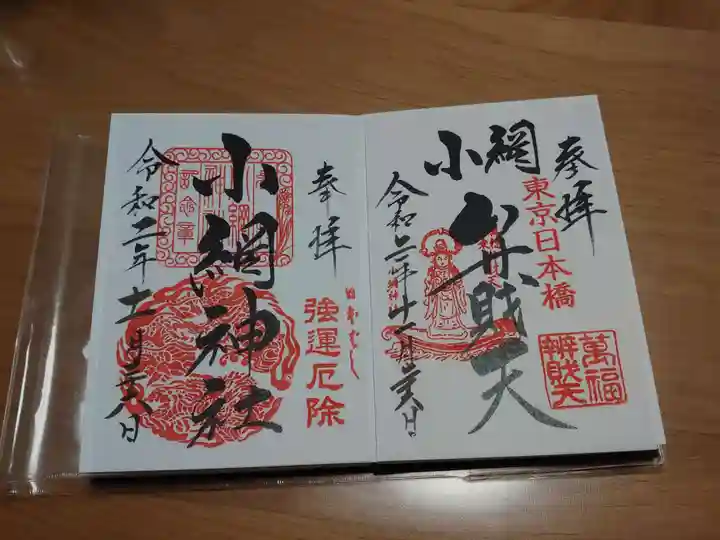 奉拝
東京日本橋
小網
弁財天
萬福
辨財天
令和二年十一月二十八日
奉拝
強運厄除
小網神社
令和二年十一月二十八日